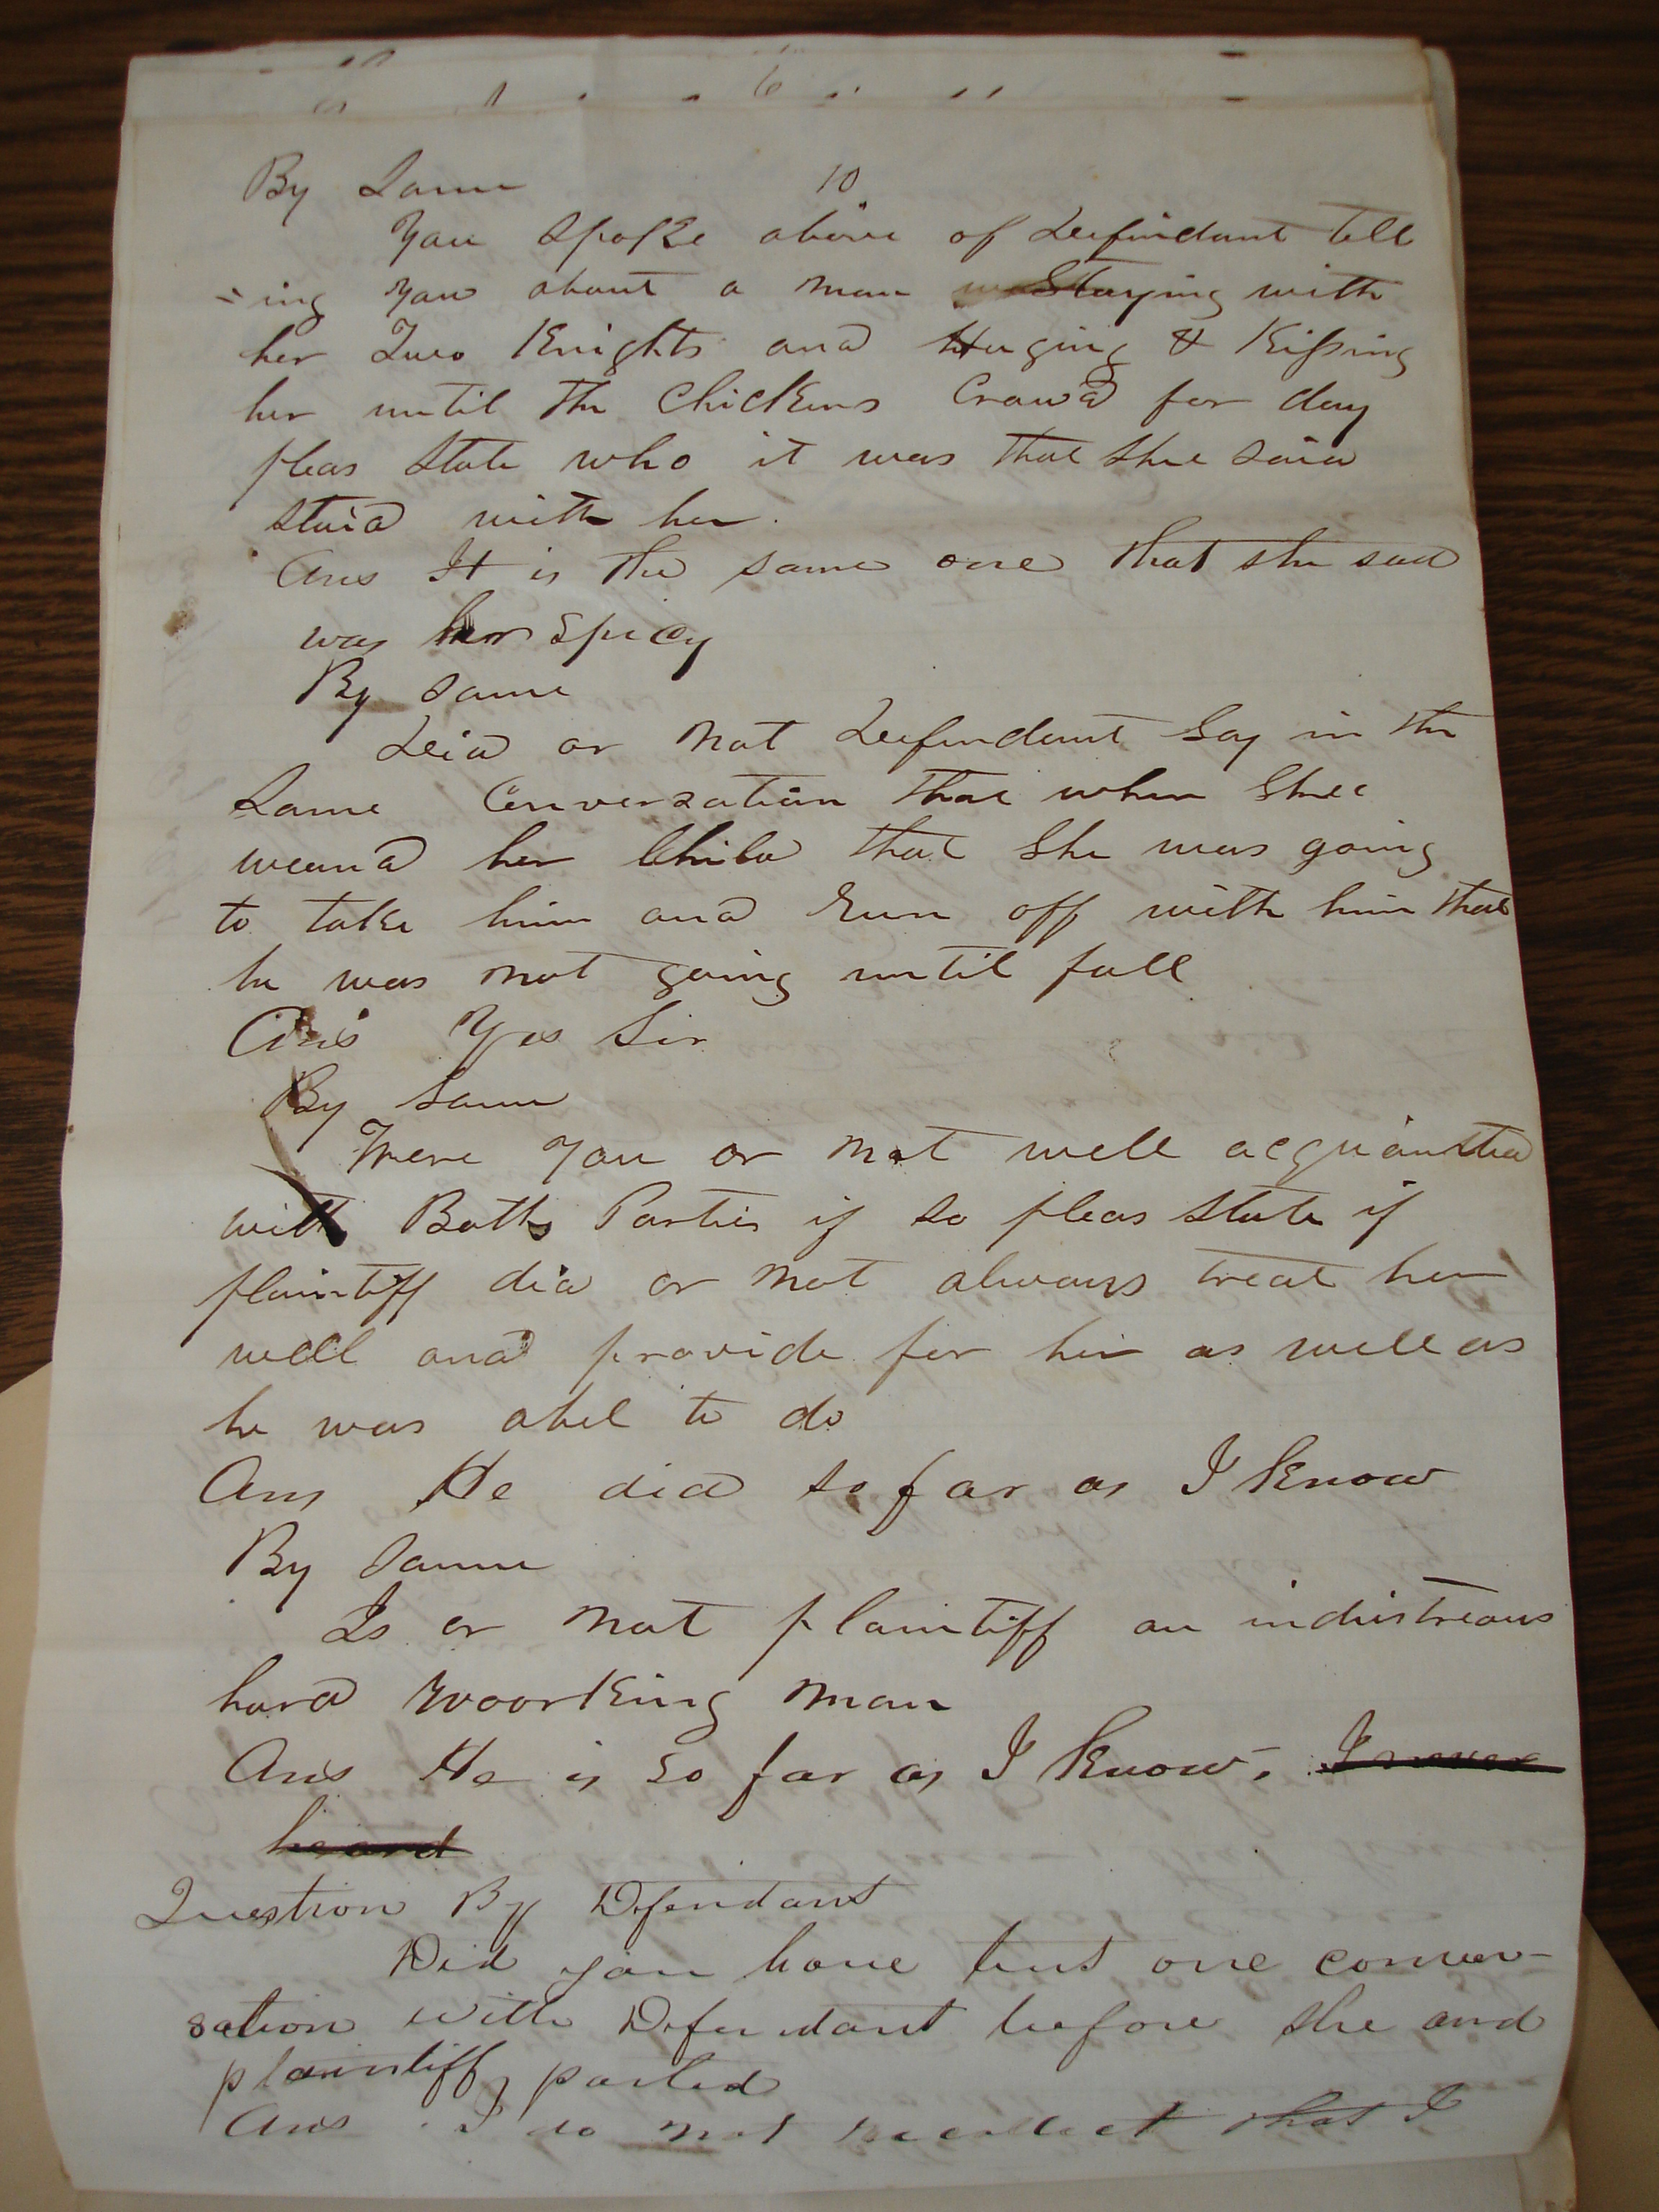 By Same 10
You spoke above of Deefindant tell
=ing you about a man Staying with
her Two Knights and Huging & Kissing
her until the Chickens Crowd for day
pleas State who it was that shee said
staid with her.
Ans It is the same one that she said
was her spicy
By same
Deid or not Deefendant Say in the
Same Conversation that when Shee
weand her Child that She was going
to take him and Run off with him that
he was not going until fall
Ans Yes Sir
By Same
Were You or not well acquainted
with Both Parties if so pleas State if
plaintiff did or not always treat her
well and provide for her as well as
he was abel to do
Ans He did so far as I know
By Same
Is or not plaintiff an industreous
hard woorking man
Ans He is so far as I know. I never
heard
Question By Defendant
Did you have but one conver-
sation with Defendant before she and
plaintiff parted
Ans I do not recollect that I